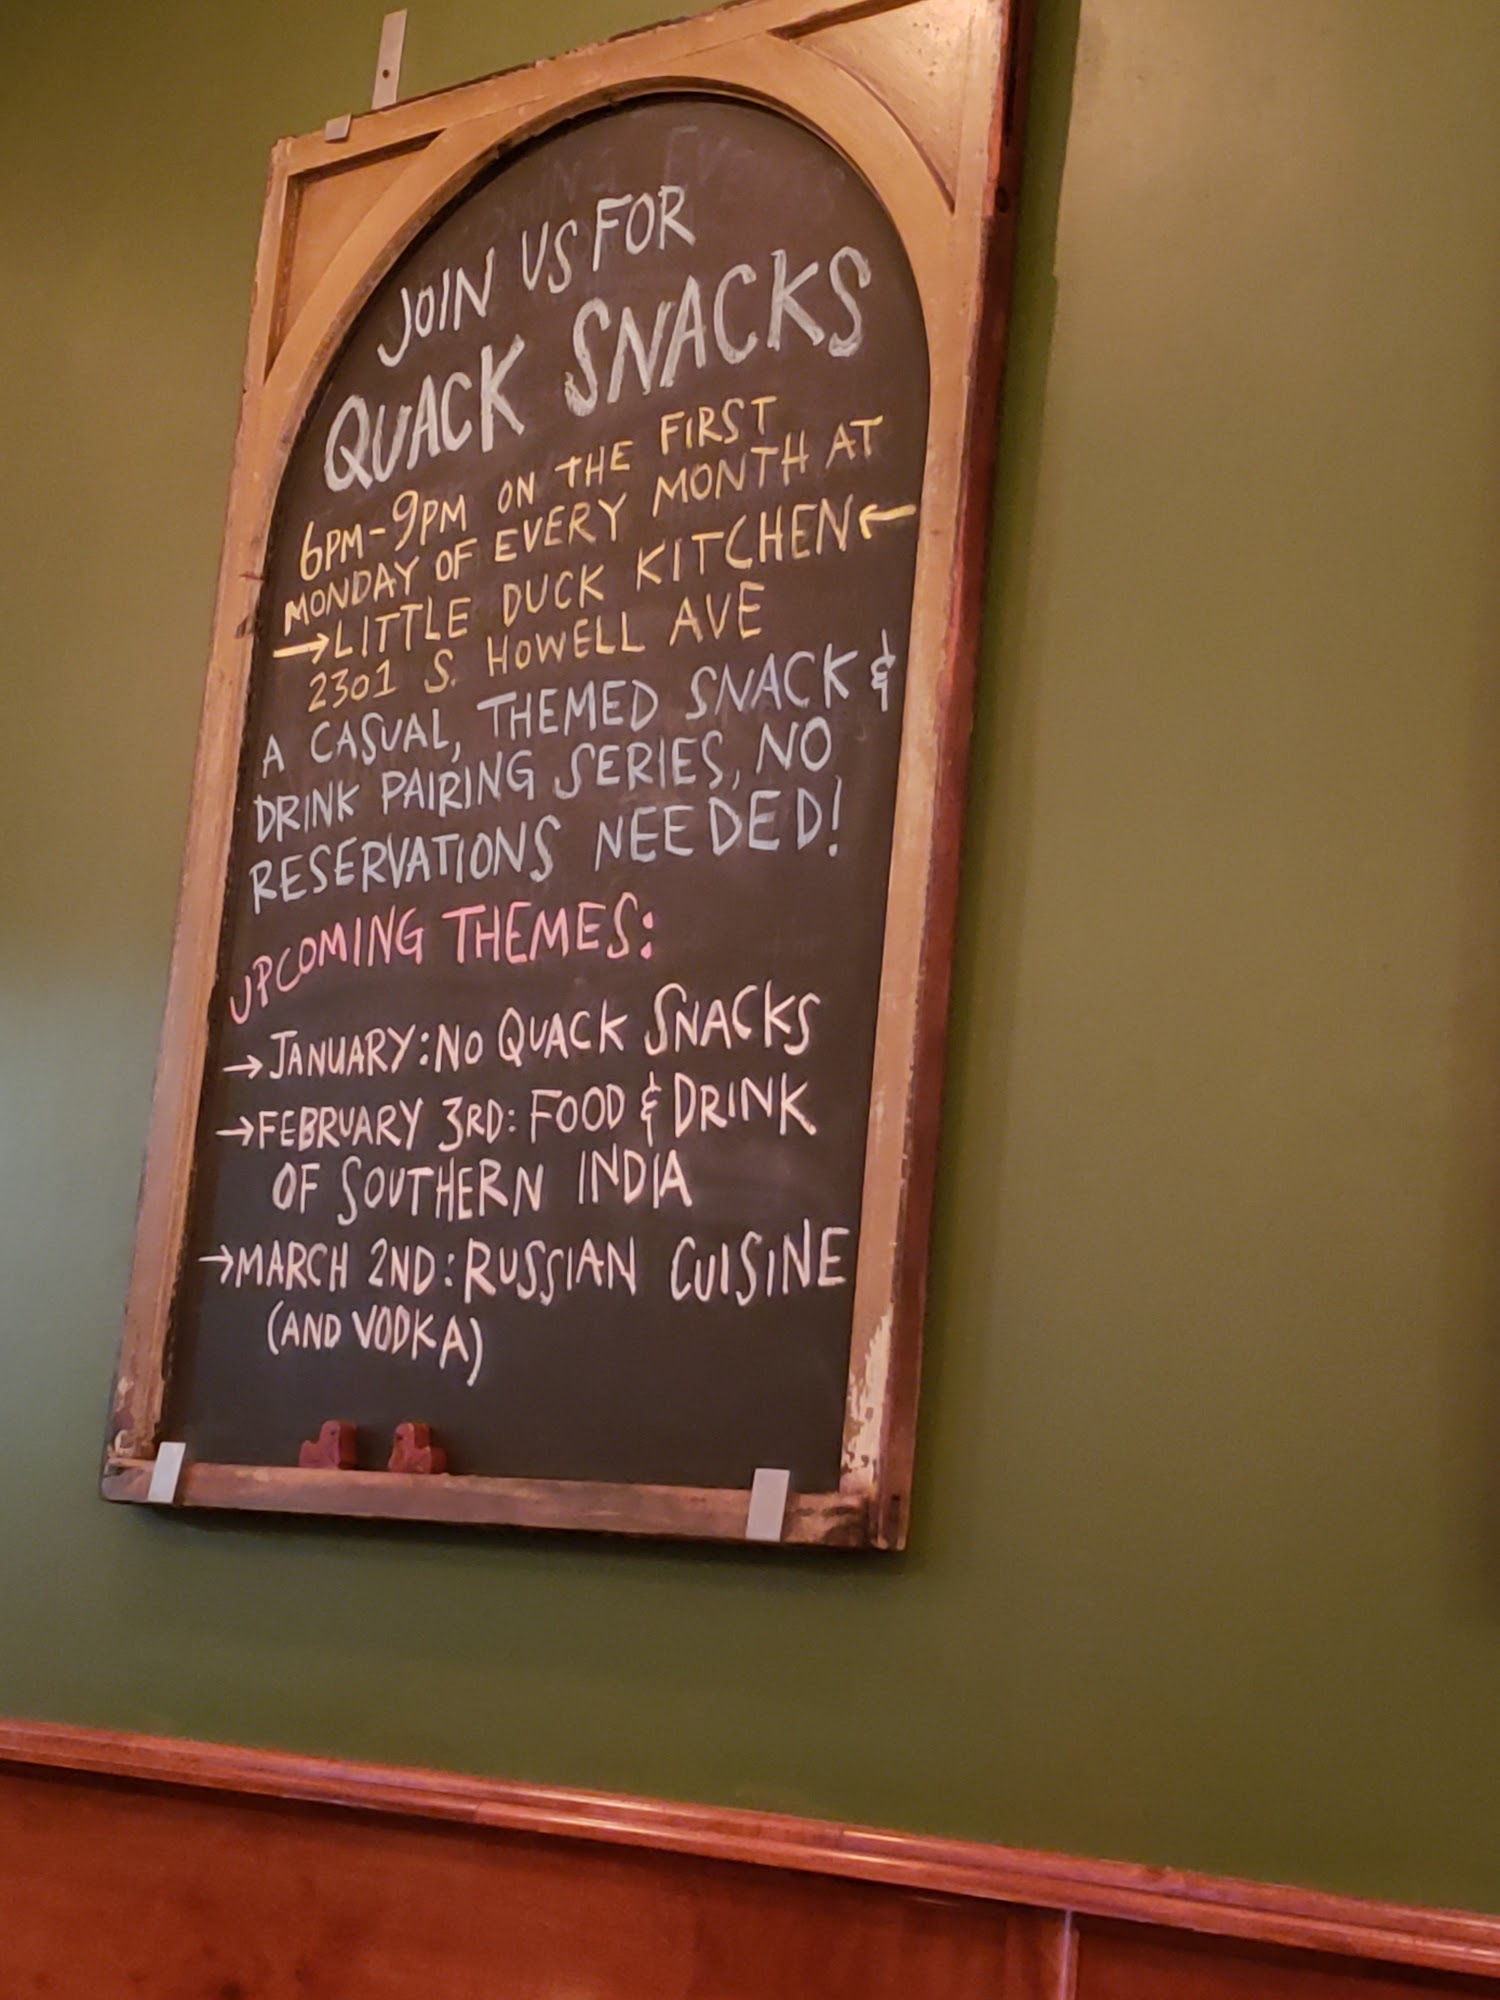 JOIN US FOR
QUACK SNACKS
6PM-9PM ON THE FIRST
MONDAY OF EVERY MONTH AT
→LITTLE DUCK KITCHEN←
2301 S. HOWELL AVE
A CASUAL, THEMED SNACK &
DRINK PAIRING SERIES, NO
RESERVATIONS NEEDED!
UPCOMING THEMES:
→JANUARY: NO QUACK SNACKS
→FEBRUARY 3RD: FOOD & DRINK
OF SOUTHERN INDIA
→MARCH 2ND: RUSSIAN CUISINE
(AND VODKA)